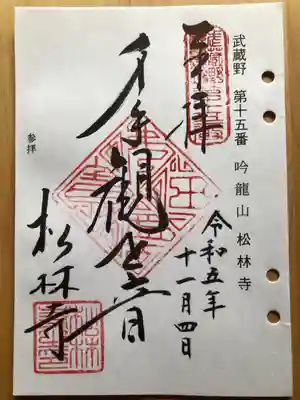 武蔵野 第十五番 吟龍山 松林寺
奉拝
千手観世音
令和五年
十一月四日
参拝
松林寺